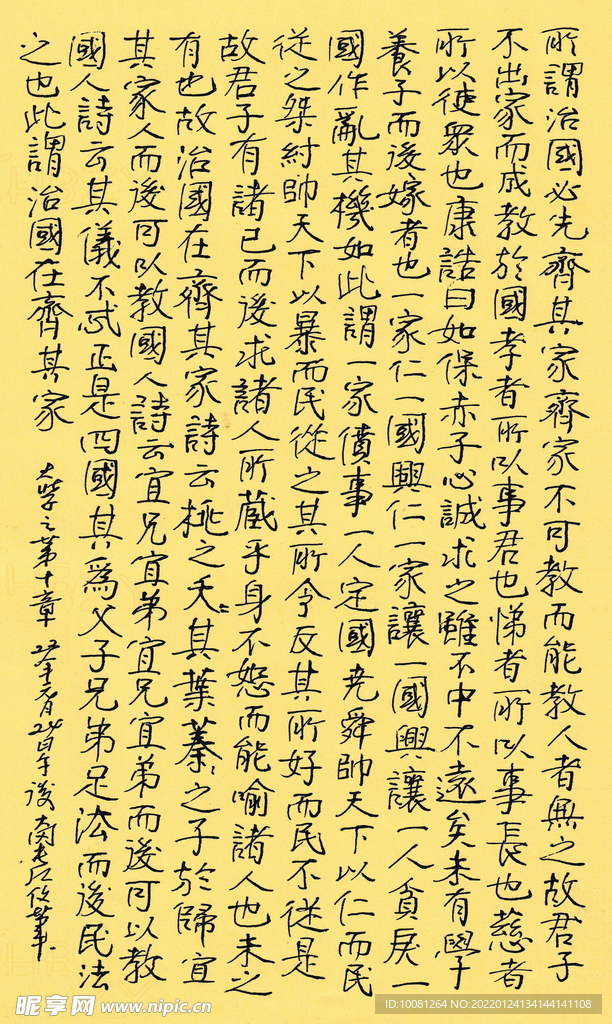 所謂治國必先齊其家齊家不可教而能教人者無之故君子
不出家而成教於國孝者所以事君也悌者所以事長也慈者
所以使眾也康誥曰如保赤子心誠求之雖不中不遠矣未有學
養子而後嫁者也一家仁一國興仁一家讓一國興讓一人貪戾一
國作亂其機如此謂一家僨事一人定國堯舜帥天下以仁而民
從之桀紂帥天下以暴而民從之其所令反其所好而民不從是
故君子有諸己而後求諸人所藏乎身不恕而能喻諸人也未之
有也故治國在齊其家詩云桃之夭〻其葉蓁〻之子於歸宜
其家人而後可以教國人詩云宜兄宜弟宜兄宜弟而後可以教
國人詩云其儀不忒正是四國其為父子兄弟足法而後民法
之也此謂治國在齊其家
大學之第十章
昵享网 www.nipic.cn
ID:10081264 NO:20220124134144141108